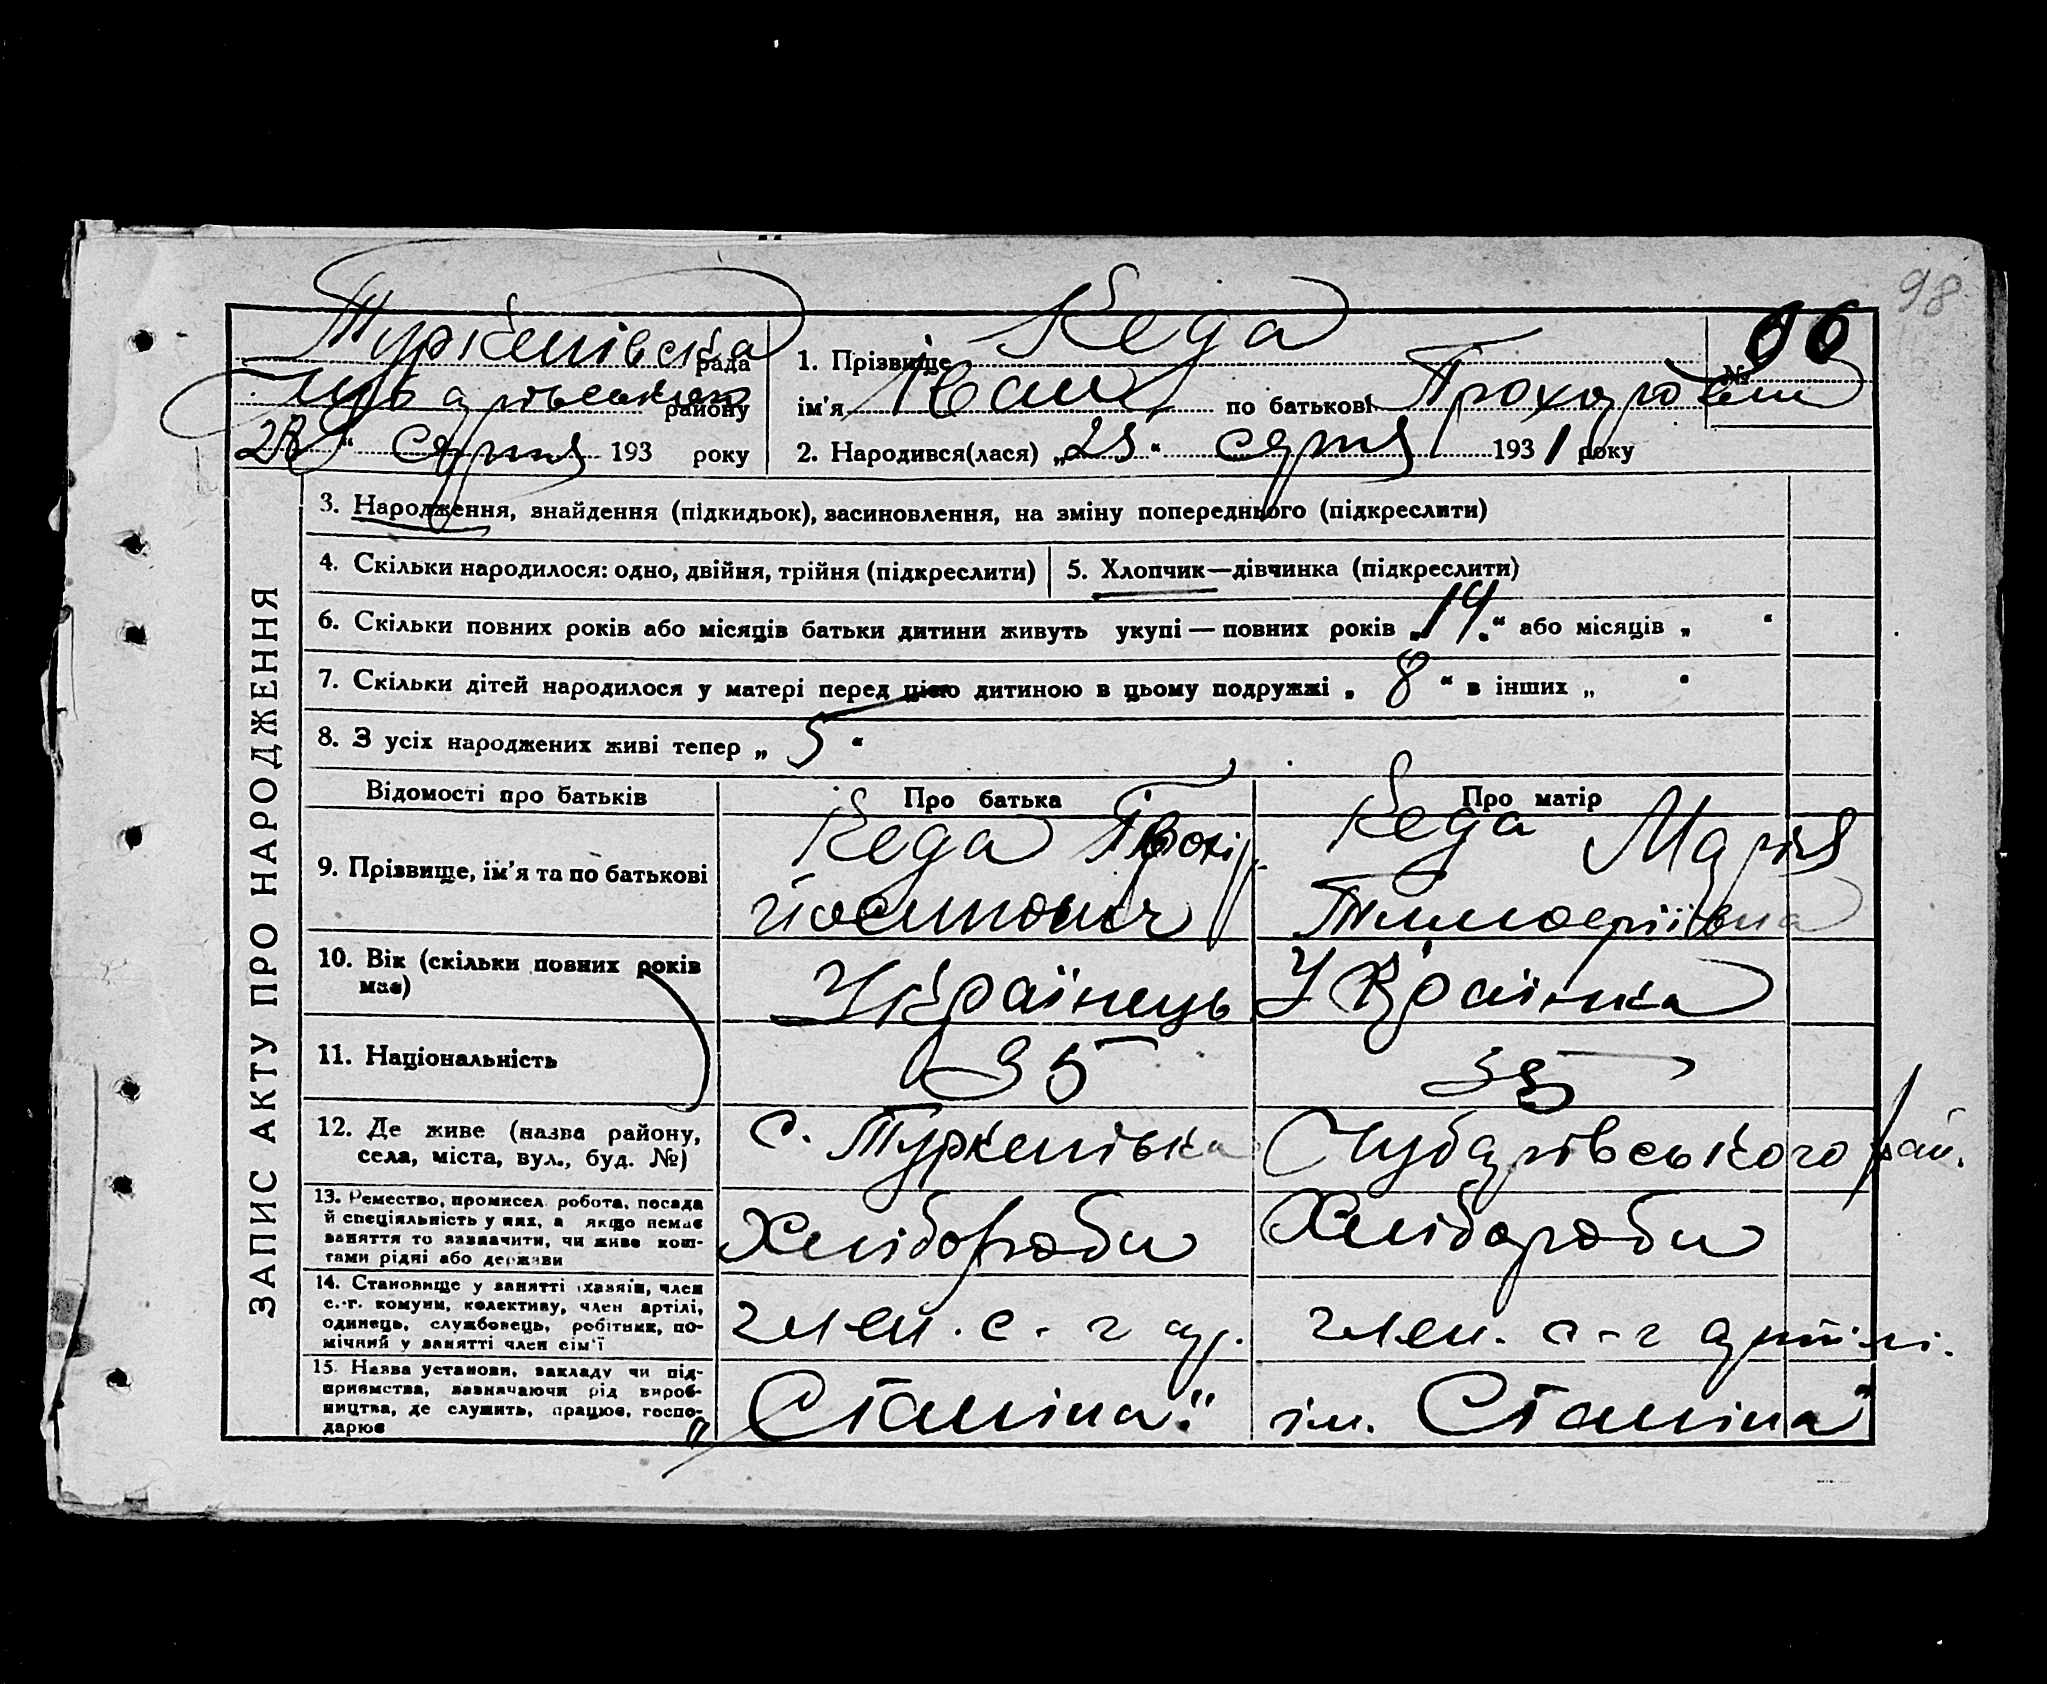 98
Туркенівска рада
Чубарівського району
28 " серпня 193 року
1. Прізвище Кеда
№ 66
ім'я Іван по батькові Прохорович
2. Народився(лася) „ 25 “ серпня 1931 року
ЗАПИС АКТУ ПРО НАРОДЖЕННЯ
3. Народження, знайдення (підкидьок), засиновлення, на зміну попереднього (підкреслити)
4. Скільки народилося: одно, двійня, трійня (підкреслити)
5. Хлопчик—дівчинка (підкреслити)
6. Скільки повних років або місяців батьки дитини живуть укупі — повних років „ 14 “ або місяців „ “
7. Скільки дітей народилося у матері перед цією дитиною в цьому подружжі „ 8 “ в інших „ “
8. З усіх народжених живі тепер „ 5 “
Відомості про батьків
Про батька
Про матір
9. Прізвище, ім'я та по батькові
Кеда
Йосипович
Кеда Марія
Тимофіївна
10. Вік (скільки повних років
має)
Українець
Українка
11. Національність
35
35
12. Де живе (назва району,
села, міста, вул., буд. №)
с. Туркенівка
Чубарівського рай.
13. Ремество, промисел, робота, посада
й спеціяльність у них, а якщо немає
заняття то зазначити, чи живе кош-
тами рідні або держави
Хлібороби
Хлібороби
14. Становище у занятті (хазяїн, член
с.-г. комуни, колективу, член артілі,
одинець, службовець, робітник, по-
мічний у занятті член сім'ї
член. с-г ар.
член. с-г артілі.
15. Назва установи, закладу чи під-
приємства, зазначаючи рід вироб-
ництва, де служить, працює, госпо-
дарює
„Сталіна“
ім. Сталіна“